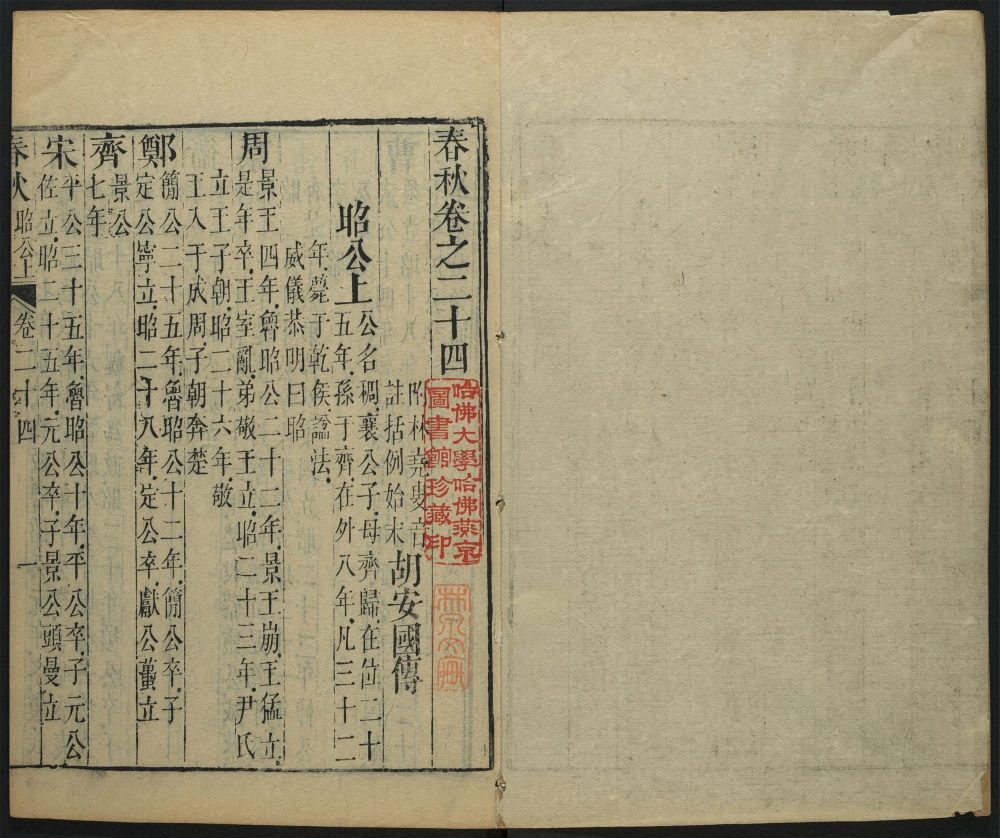 春秋卷之二十四
附林堯叟音
註括例始末
胡安國傳
昭公上
公名稠襄公子母齊歸在位二十
五年孫于齊在外八年凡三十二
年薨于乾侯謚法
威儀恭明曰昭
周
景王四年魯昭公二十二年景王崩王猛立
是年卒王室亂弟敬王立昭二十三年尹氏
立王子朝昭二十六年敬
王入于成周子朝奔楚
鄭
簡公二十五年魯昭公十二年簡公卒子
定公寧立昭二十八年定公卒獻公蠆立
齊
景公
七年
宋
平公三十五年魯昭公十年平公卒子元公
佐立昭二十五年元公卒子景公頭曼立
春秋
昭公上
卷二十四
一
哈佛大學哈佛燕京
圖書館珍藏印